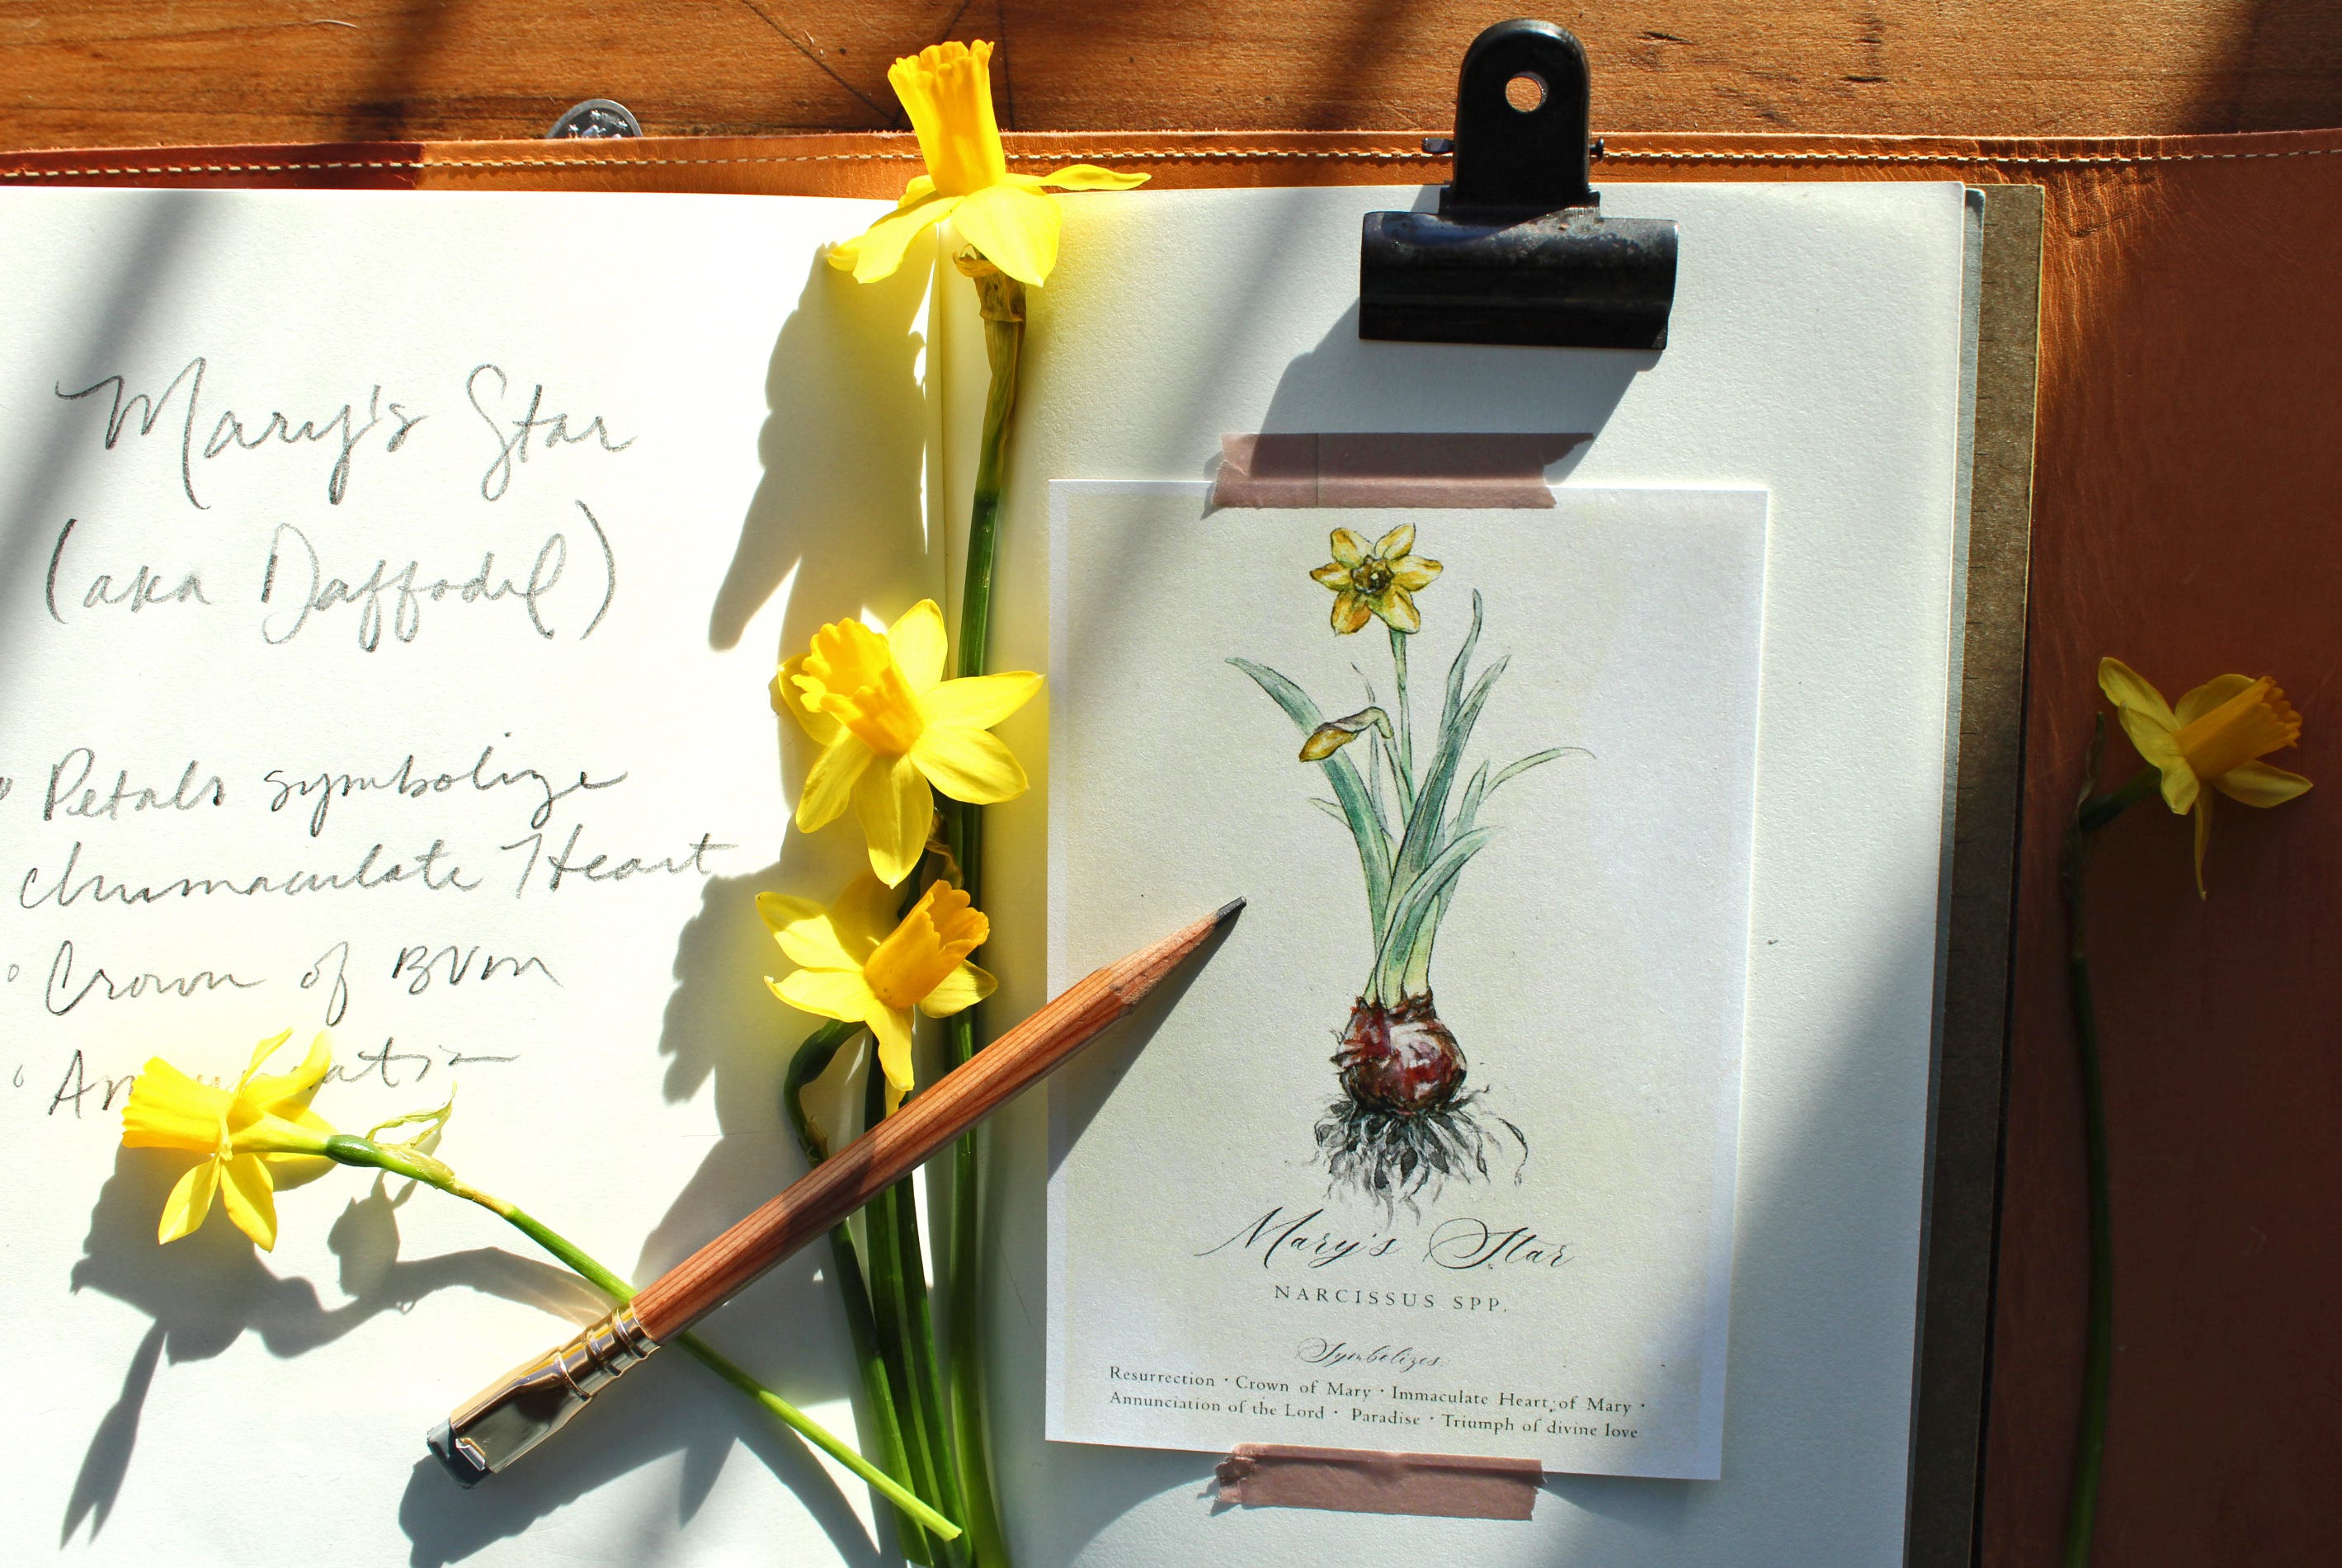 Mary's Star
(aka Daffodil)
° Petals symbolize
Immaculate Heart
° Crown of BVM
°
Mary's Star
NARCISSUS SPP.
Symbolizes
Resurrection · Crown of Mary · Immaculate Heart of Mary ·
Annunciation of the Lord · Paradise · Triumph of divine love